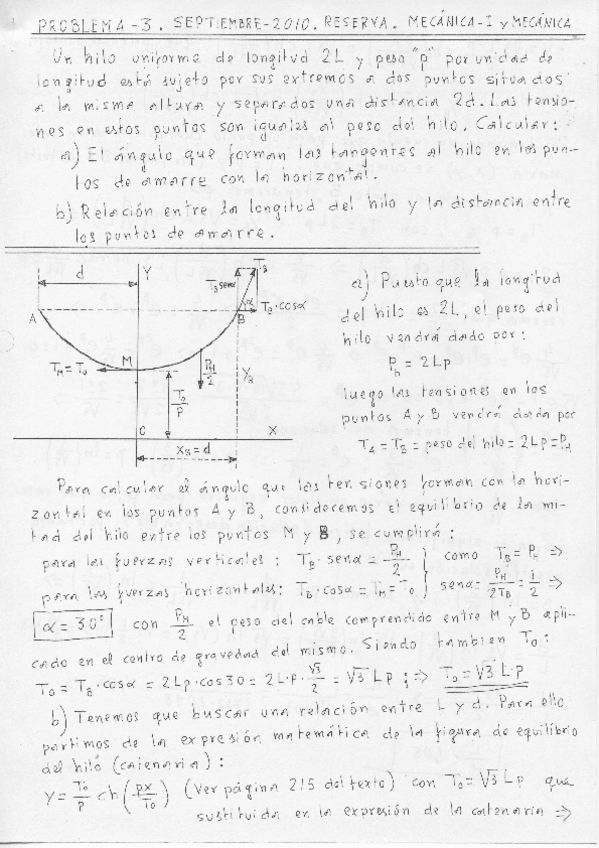 PROBLEMA-3. SEPTIEMBRE-2010. RESERVA. MECÁNICA-I y MECÁNICA
Un hilo uniforme de longitud 2L y peso "p" por unidad de
longitud está sujeto por sus extremos a dos puntos situados
a la misma altura y separados una distancia 2d. Las tensio-
nes en estos puntos son iguales al peso del hilo. Calcular:
a) El ángulo que forman las tangentes al hilo en los pun-
tos de amarre con la horizontal.
b) Relación entre la longitud del hilo y la distancia entre
los puntos de amarre.
d
Y
T_B senα
T_B
α
T_B·cosα
A
B
M
T_M=T_0
P_H/2
Y_B
T_0/P
C
X
X_B=d
a) Puesto que la longitud
del hilo es 2L, el peso del
hilo vendrá dado por:
P_h = 2Lp
luego las tensiones en los
puntos A y B vendrá dada por
T_A = T_B = peso del hilo = 2Lp = P_H
Para calcular el ángulo que las tensiones forman con la hori-
zontal en los puntos A y B, consideremos el equilibrio de la mi-
tad del hilo entre los puntos M y B, se cumplirá:
para las fuerzas verticales: T_B·senα = P_H/2 } como T_B = P_H ⇒
para las fuerzas horizontales: T_B·cosα = T_M = T_0 } senα = P_H/2T_B = 1/2 ⇒
α = 30° con P_H/2 el peso del cable comprendido entre M y B apli-
cado en el centro de gravedad del mismo. Siendo tambien T_0:
T_0 = T_B·cosα = 2Lp·cos30 = 2L·p·√3/2 = √3 Lp ; ⇒ T_0 = √3 L·p
b) Tenemos que buscar una relación entre L y d. Para ello
partimos de la expresión matemática de la figura de equilibrio
del hilo (catenaria):
y = T_0/p ch(px/T_0) (Ver página 215 del texto) con T_0 = √3 Lp que
sustituida en la expresión de la catenaria ⇒